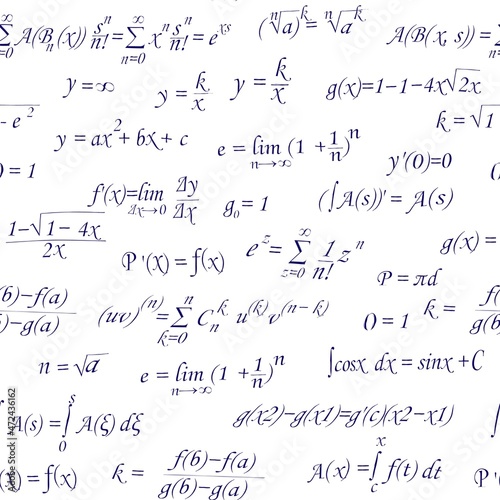 ∞ Σ =0 A(Bₙ(x)) sⁿ/n! = ∞ Σ n=0 xⁿ sⁿ/n! = e^xs
(ⁿ√a)^k = ⁿ√a^k
A(B(x, s)) = Σ n=
y = ∞
y = k/x
y = k/x
g(x)=1-1-4x√2x
- e²
y = ax² + bx + c
e = lim n→∞ (1 + 1/n)ⁿ
k = √1
y'(0)=0
0 = 1
f'(x)=lim Δx→0 Δy/Δx
g₀ = 1
(∫A(s))' = A(s)
1-√1- 4x / 2x
P '(x) = f(x)
e^z = ∞ Σ z=0 1/n! z ⁿ
g(x) =
P = πd
(b)-f(a) / )-g(a)
(uv)^(n) = n Σ k=0 C n k u^(k) v^(n- k)
0 = 1
k = f( / g(b
n = √a
e = lim n→∞ (1 + 1/n)ⁿ
∫cosx dx = sinx +C
A(s) = s ∫ 0 A(ξ) dξ
g(x2)-g(x1)=g'(c)(x2-x1)
(x) = f(x)
k = f(b)-f(a) / g(b)-g(a)
A(x) = x ∫ c f(t) dt
P '(
Adobe Stock | #472436162
Adobe Stock